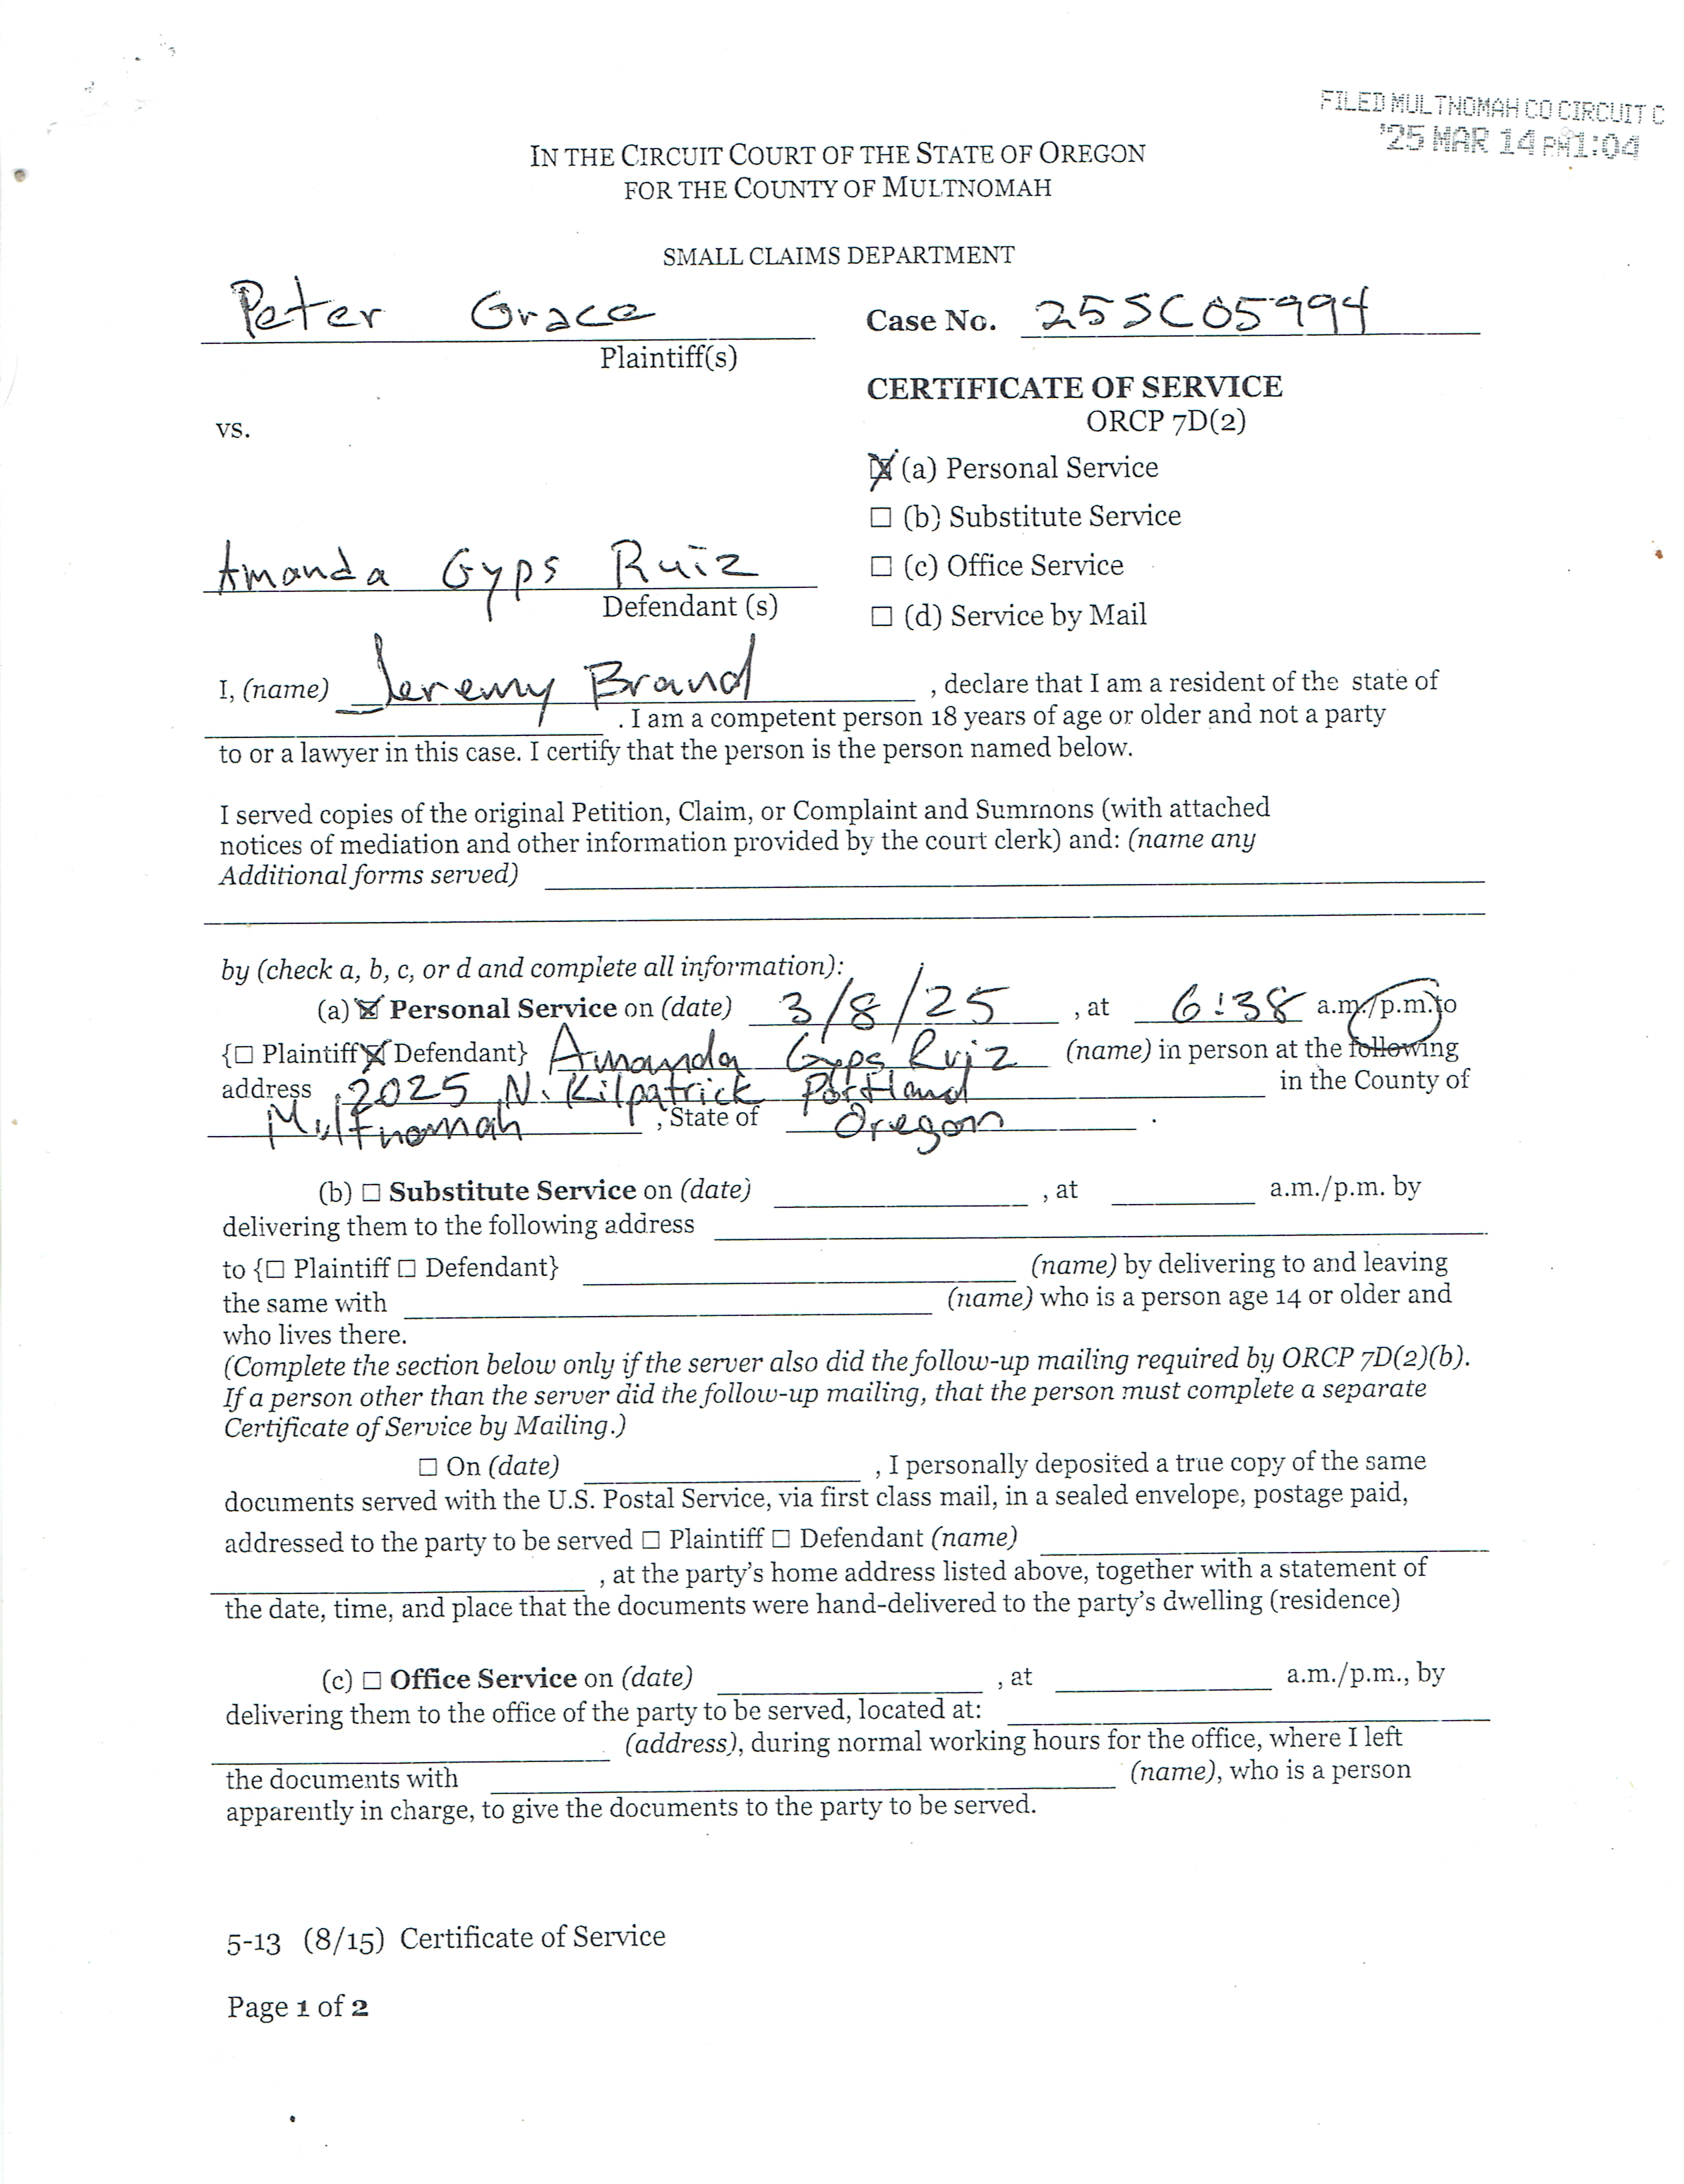 FILED MULTNOMAH CO CIRCUIT C
'25 MAR 14 PM 1:04
IN THE CIRCUIT COURT OF THE STATE OF OREGON
FOR THE COUNTY OF MULTNOMAH
SMALL CLAIMS DEPARTMENT
Peter Grace
Plaintiff(s)
Case No. 25SC05994
CERTIFICATE OF SERVICE
ORCP 7D(2)
vs.
☒ (a) Personal Service
☐ (b) Substitute Service
Amanda Gyps Ruiz
Defendant (s)
☐ (c) Office Service
☐ (d) Service by Mail
I, (name) Jeremy Brand , declare that I am a resident of the state of
. I am a competent person 18 years of age or older and not a party
to or a lawyer in this case. I certify that the person is the person named below.
I served copies of the original Petition, Claim, or Complaint and Summons (with attached
notices of mediation and other information provided by the court clerk) and: (name any
Additional forms served)
by (check a, b, c, or d and complete all information):
(a) ☒ Personal Service on (date) 3/8/25 , at 6:38 a.m./p.m. to
{☐ Plaintiff ☒ Defendant} Amanda Gyps Ruiz (name) in person at the following
address 2025 N. Kilpatrick Portland in the County of
Multnomah , State of Oregon .
(b) ☐ Substitute Service on (date) , at a.m./p.m. by
delivering them to the following address
to {☐ Plaintiff ☐ Defendant} (name) by delivering to and leaving
the same with (name) who is a person age 14 or older and
who lives there.
(Complete the section below only if the server also did the follow-up mailing required by ORCP 7D(2)(b).
If a person other than the server did the follow-up mailing, that the person must complete a separate
Certificate of Service by Mailing.)
☐ On (date) , I personally deposited a true copy of the same
documents served with the U.S. Postal Service, via first class mail, in a sealed envelope, postage paid,
addressed to the party to be served ☐ Plaintiff ☐ Defendant (name)
, at the party's home address listed above, together with a statement of
the date, time, and place that the documents were hand-delivered to the party's dwelling (residence)
(c) ☐ Office Service on (date) , at a.m./p.m., by
delivering them to the office of the party to be served, located at:
(address), during normal working hours for the office, where I left
the documents with (name), who is a person
apparently in charge, to give the documents to the party to be served.
5-13 (8/15) Certificate of Service
Page 1 of 2